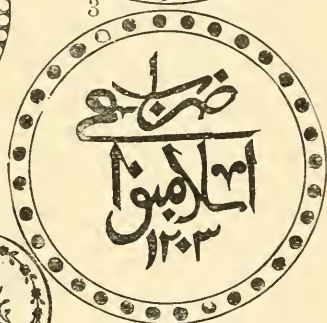 ضرب فى
اسلامبول
١٢٠٣